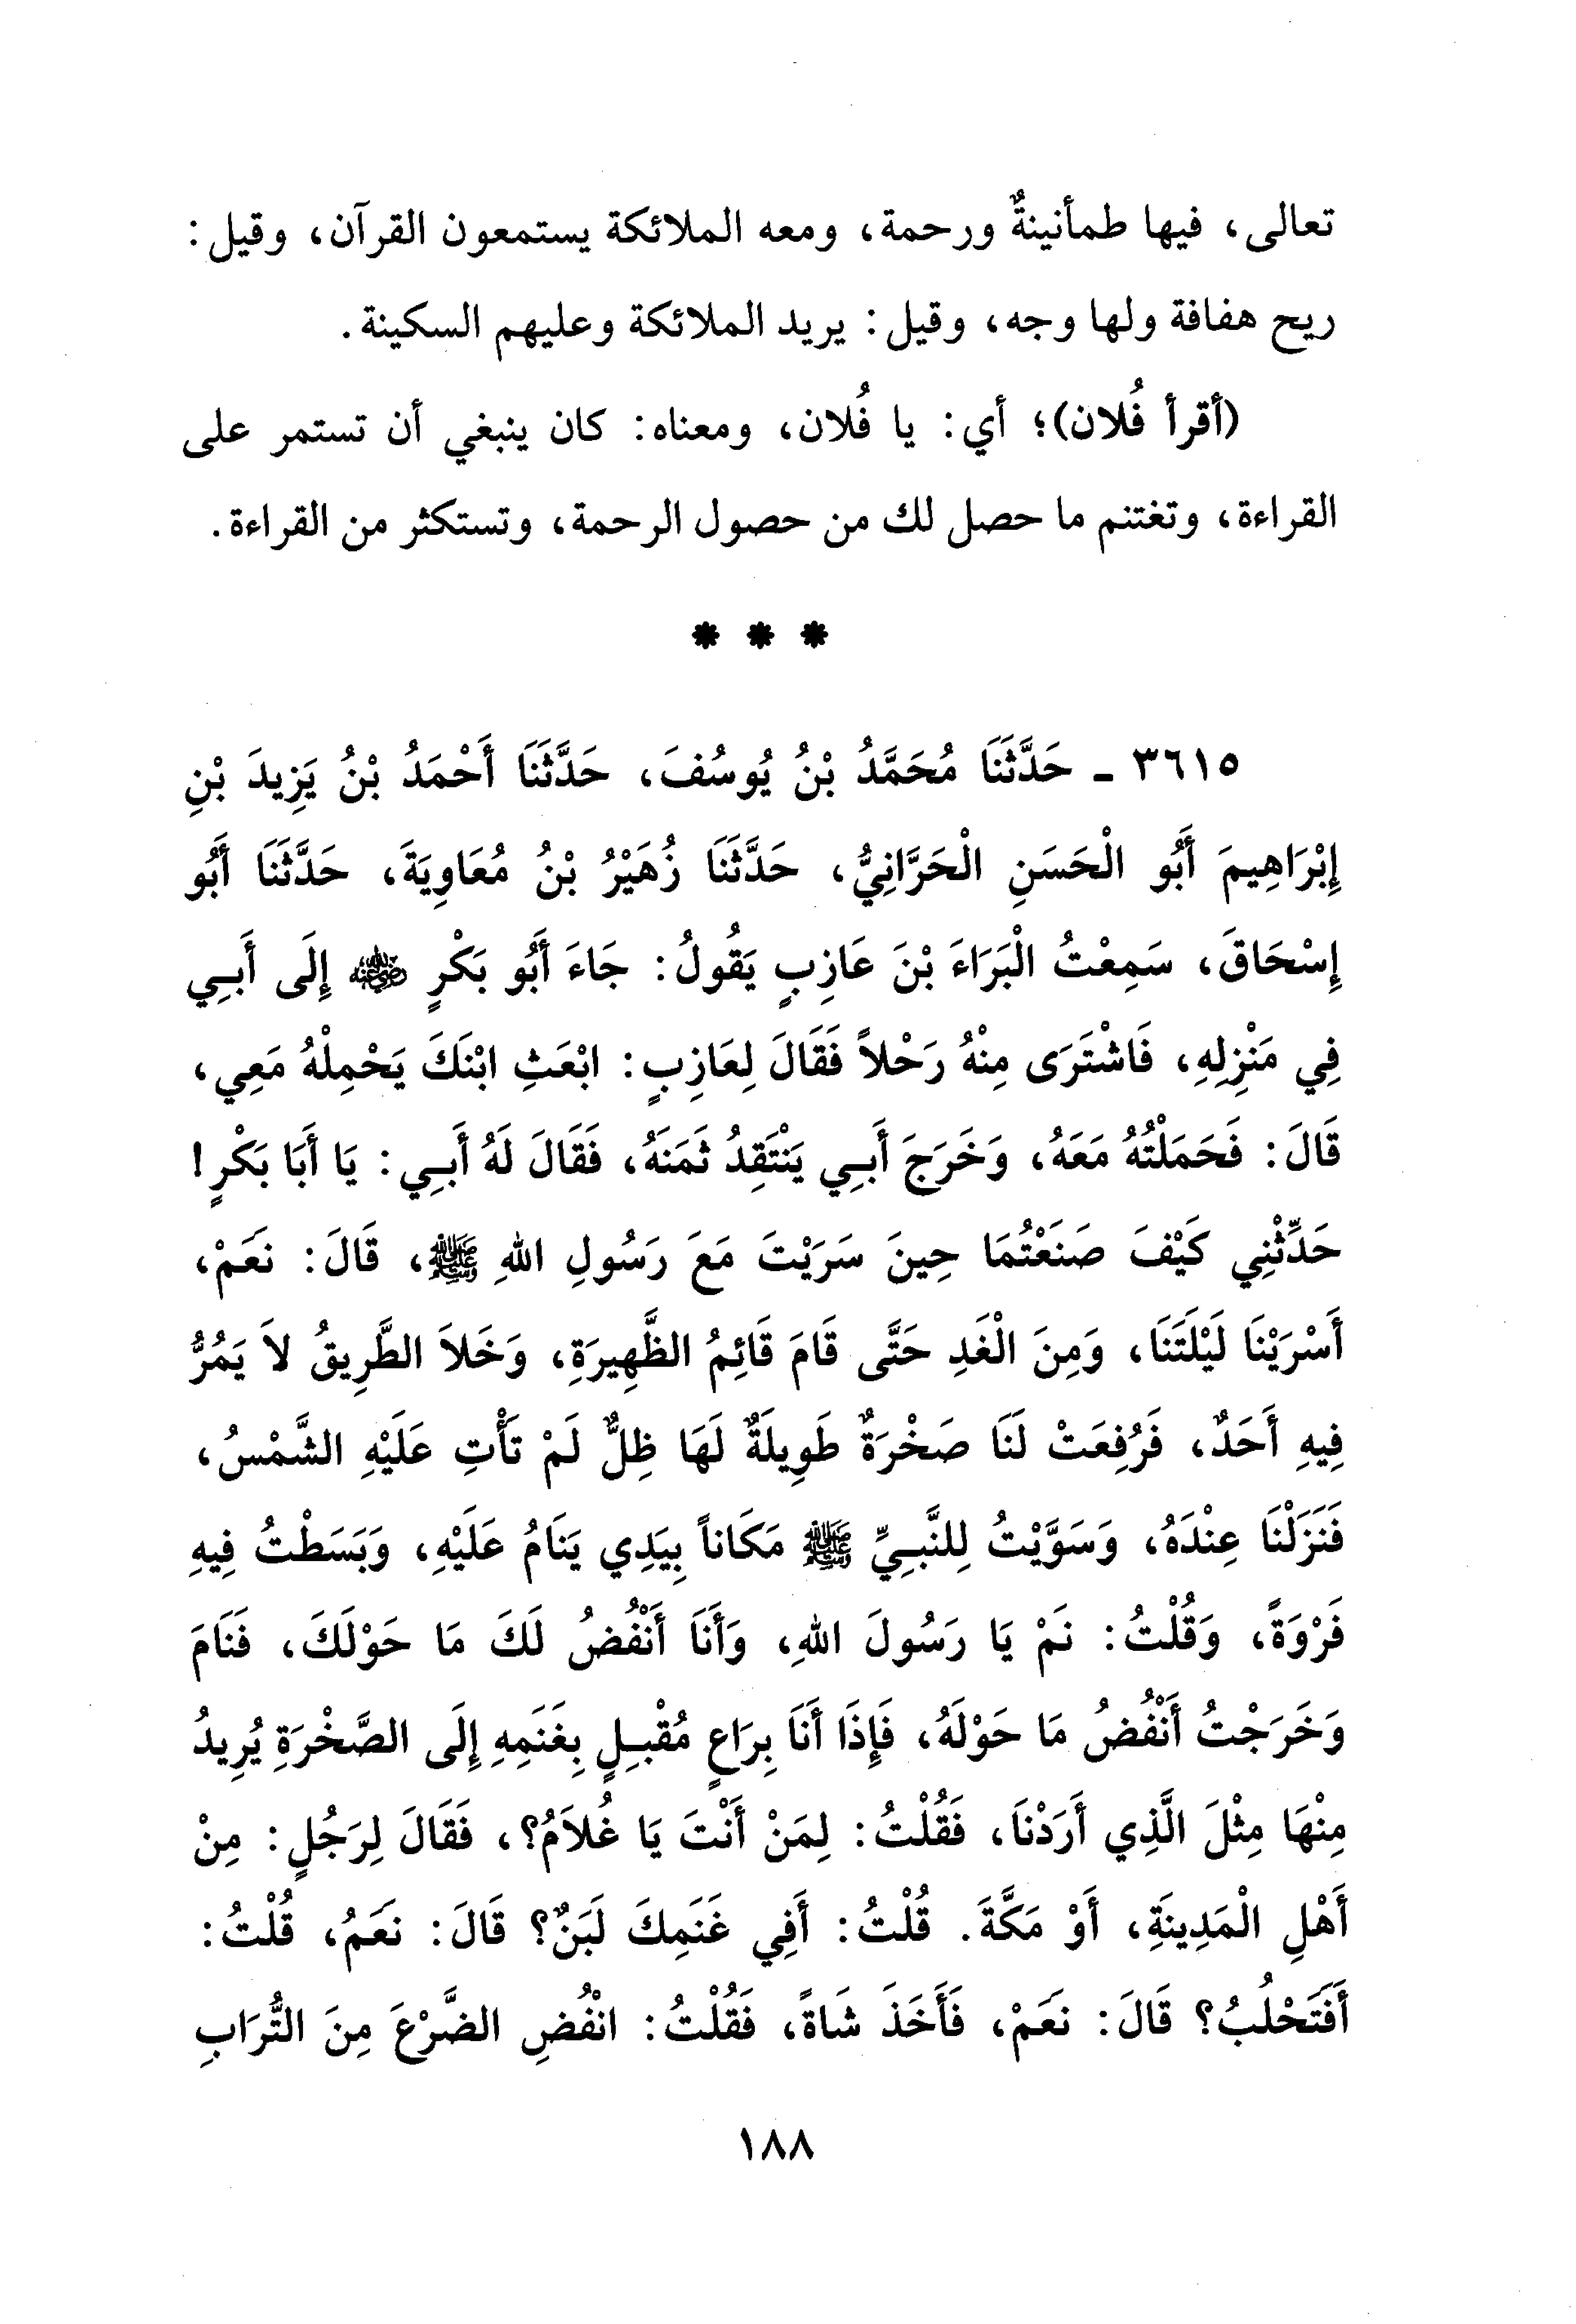 تعالى، فيها طمأنينةٌ ورحمة، ومعه الملائكة يستمعون القرآن، وقيل:
ريح هفافة ولها وجه، وقيل: يريد الملائكة وعليهم السكينة.
(أقرأ فُلان)؛ أي: يا فُلان، ومعناه: كان ينبغي أن تستمر على
القراءة، وتغتنم ما حصل لك من حصول الرحمة، وتستكثر من القراءة.
* * *
٣٦١٥ - حَدَّثَنَا مُحَمَّدُ بْنُ يُوسُفَ، حَدَّثَنَا أَحْمَدُ بْنُ يَزِيدَ بْنِ
إِبْرَاهِيمَ أَبُو الْحَسَنِ الْحَرَّانِيُّ، حَدَّثَنَا زُهَيْرُ بْنُ مُعَاوِيَةَ، حَدَّثَنَا أَبُو
إِسْحَاقَ، سَمِعْتُ الْبَرَاءَ بْنَ عَازِبٍ يَقُولُ: جَاءَ أَبُو بَكْرٍ رضي الله عنه إِلَى أَبِي
فِي مَنْزِلِهِ، فَاشْتَرَى مِنْهُ رَحْلاً فَقَالَ لِعَازِبٍ: ابْعَثِ ابْنَكَ يَحْمِلْهُ مَعِي،
قَالَ: فَحَمَلْتُهُ مَعَهُ، وَخَرَجَ أَبِي يَنْتَقِدُ ثَمَنَهُ، فَقَالَ لَهُ أَبِي: يَا أَبَا بَكْرٍ!
حَدِّثْنِي كَيْفَ صَنَعْتُمَا حِينَ سَرَيْتَ مَعَ رَسُولِ اللهِ ﷺ، قَالَ: نَعَمْ،
أَسْرَيْنَا لَيْلَتَنَا، وَمِنَ الْغَدِ حَتَّى قَامَ قَائِمُ الظَّهِيرَةِ، وَخَلاَ الطَّرِيقُ لاَ يَمُرُّ
فِيهِ أَحَدٌ، فَرُفِعَتْ لَنَا صَخْرَةٌ طَوِيلَةٌ لَهَا ظِلٌّ لَمْ تَأْتِ عَلَيْهِ الشَّمْسُ،
فَنَزَلْنَا عِنْدَهُ، وَسَوَّيْتُ لِلنَّبِيِّ ﷺ مَكَاناً بِيَدِي يَنَامُ عَلَيْهِ، وَبَسَطْتُ فِيهِ
فَرْوَةً، وَقُلْتُ: نَمْ يَا رَسُولَ اللهِ، وَأَنَا أَنْفُضُ لَكَ مَا حَوْلَكَ، فَنَامَ
وَخَرَجْتُ أَنْفُضُ مَا حَوْلَهُ، فَإِذَا أَنَا بِرَاعٍ مُقْبِلٍ بِغَنَمِهِ إِلَى الصَّخْرَةِ يُرِيدُ
مِنْهَا مِثْلَ الَّذِي أَرَدْنَا، فَقُلْتُ: لِمَنْ أَنْتَ يَا غُلاَمُ؟، فَقَالَ لِرَجُلٍ: مِنْ
أَهْلِ الْمَدِينَةِ، أَوْ مَكَّةَ. قُلْتُ: أَفِي غَنَمِكَ لَبَنٌ؟ قَالَ: نَعَمُ، قُلْتُ:
أَفَتَحْلُبُ؟ قَالَ: نَعَمْ، فَأَخَذَ شَاةً، فَقُلْتُ: انْفُضِ الضَّرْعَ مِنَ التُّرَابِ
١٨٨